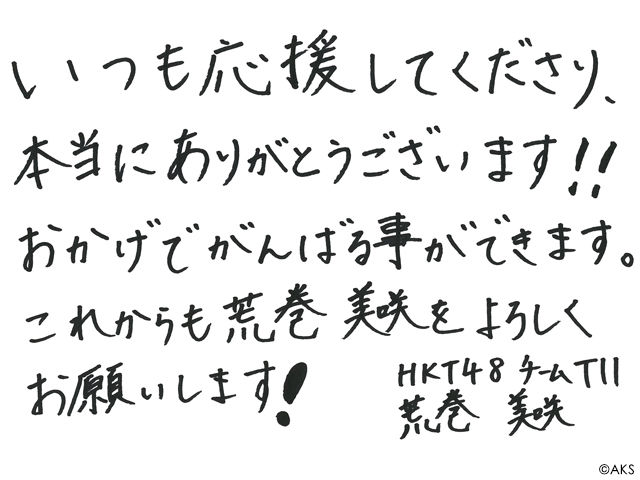 いつも応援してくださり、
本当にありがとうございます!!
おかげでがんばる事ができます。
これからも荒巻 美咲をよろしく
お願いします!
HKT48 チームTII
荒巻 美咲
©AKS